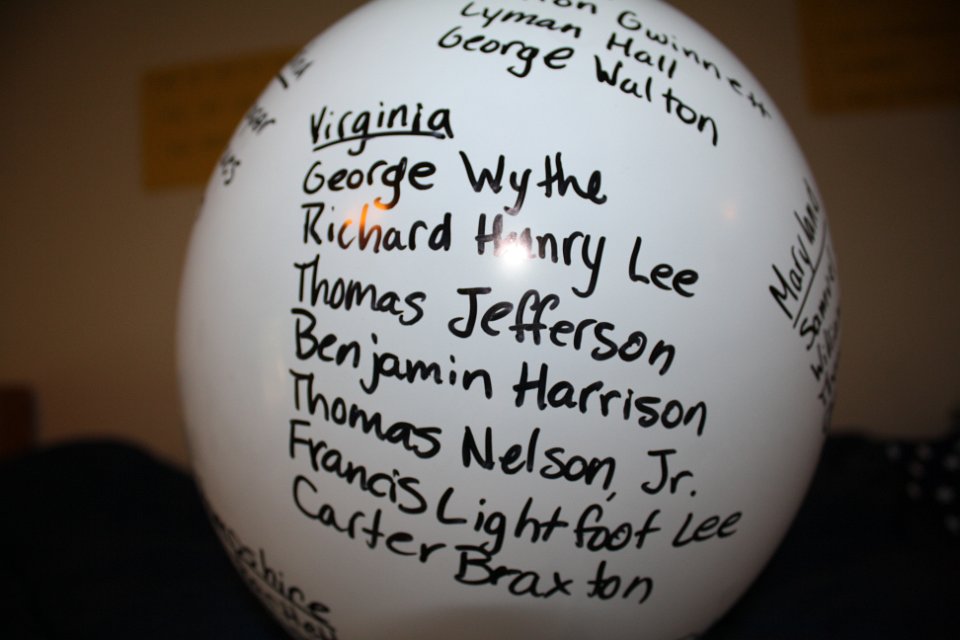 Gwinnett
Lyman Hall
George Walton
Virginia
George Wythe
Richard Henry Lee
Thomas Jefferson
Benjamin Harrison
Thomas Nelson, Jr.
Francis Lightfoot Lee
Carter Braxton
Maryland